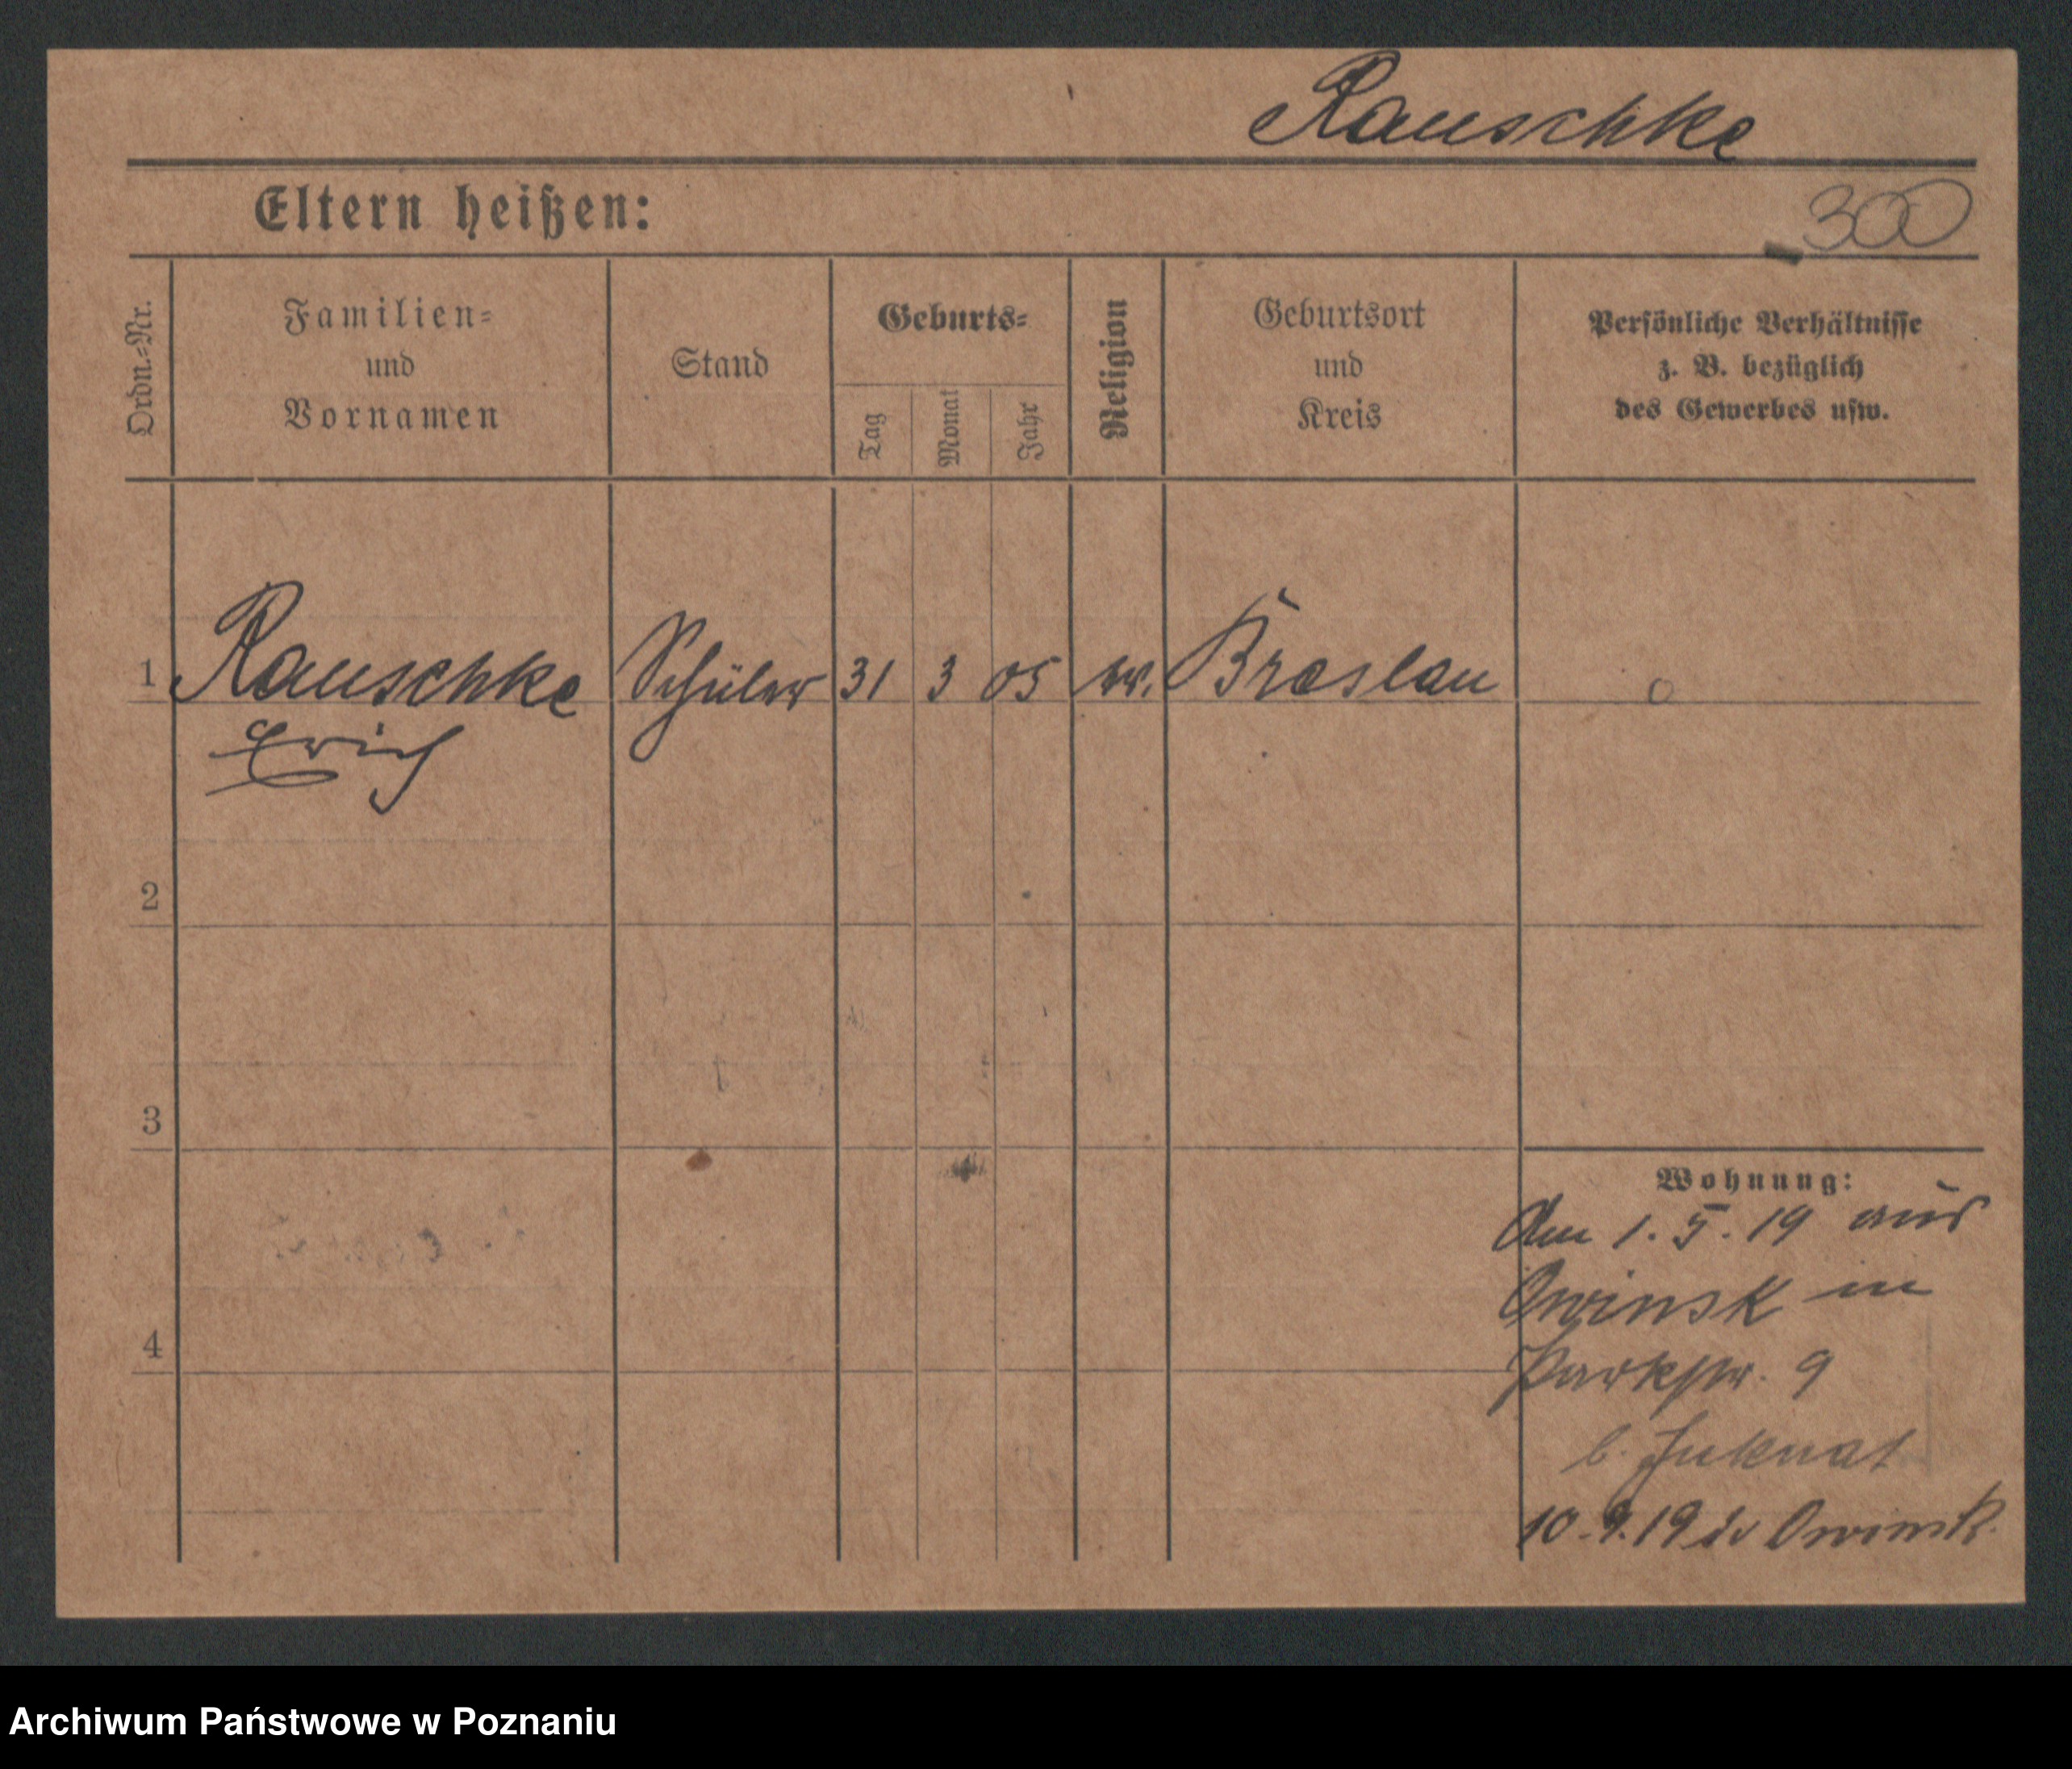 Rauschke
Eltern heißen:
300
Ordn.=Nr.
Familien=
und
Vornamen
Stand
Geburts=
Tag
Monat
Jahr
Religion
Geburtsort
und
Kreis
Persönliche Verhältnisse
z. B. bezüglich
des Gewerbes usw.
1 Rauschke Schüler 31 3 05 ev. Breslau 0
Erich
2
3
4
Wohnung:
Am 1. 5. 19 aus
Owinsk in
Parkstr. 9
b. Juknat
10. 9. 19 Owinsk.
Archiwum Państwowe w Poznaniu